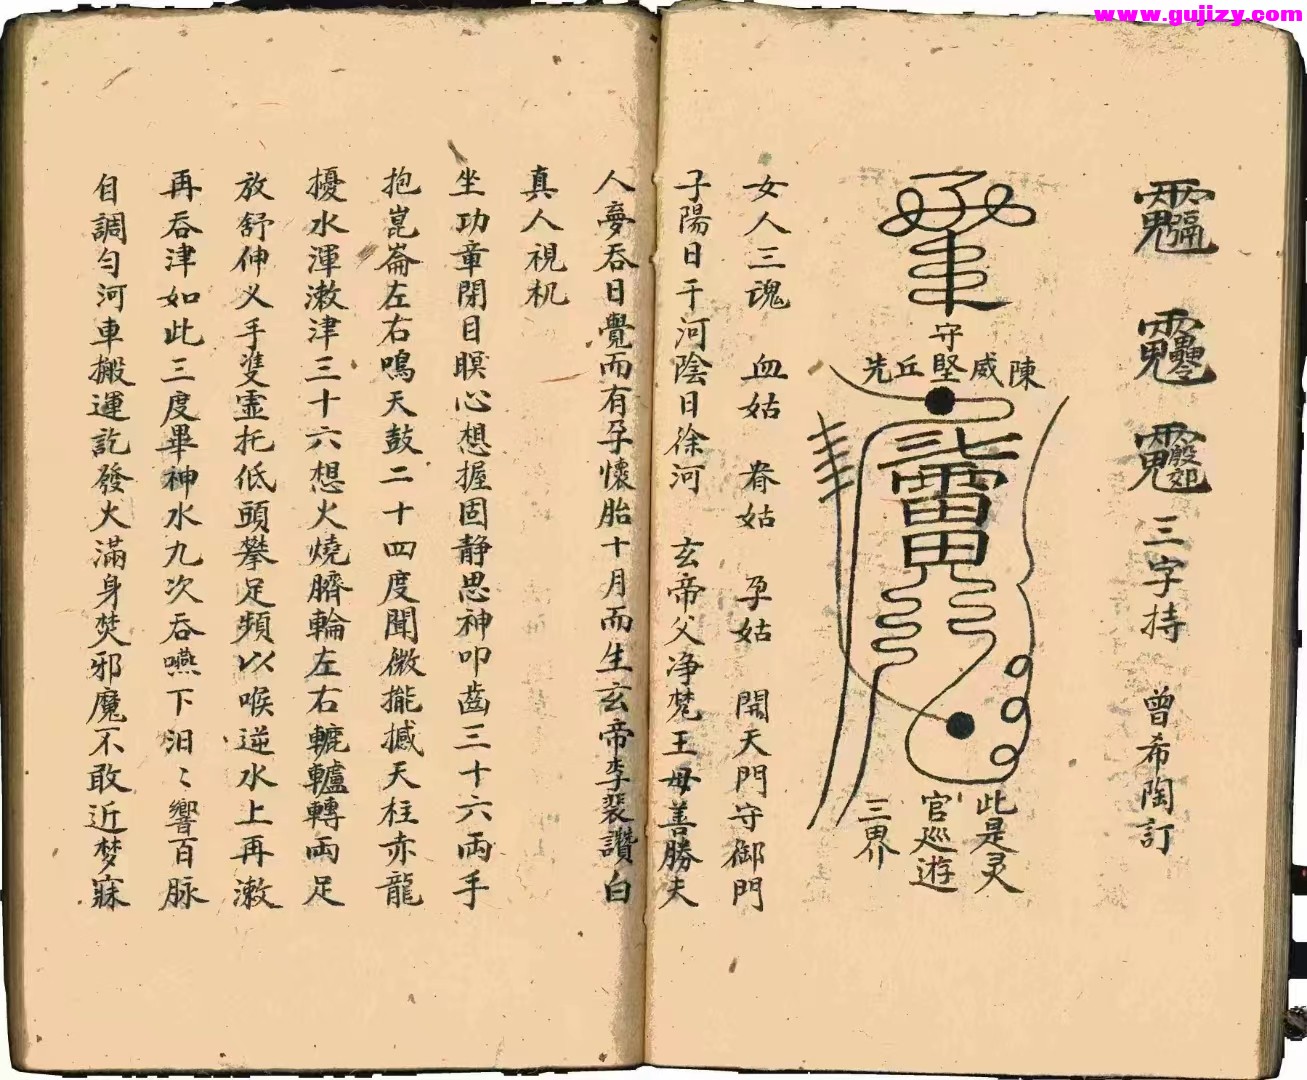 www.gujizy.com
三字持 曾希陶訂
守
陳威堅丘先
雷
此是灵
官巡遊
三界
女人三魂 血姑 眷姑 孕姑 開天門守御門
子陽日干河陰日徐河 玄帝父净梵王母善勝夫
人夢吞日覺而有孕懷胎十月而生玄帝李裴讚白
真人視机
坐功章閉目瞑心想握固静思神叩齒三十六両手
抱崑崙左右鳴天鼓二十四度聞微擺撼天柱赤龍
擾水渾漱津三十六想火燒臍輪左右轆轤轉両足
放舒伸义手雙霊托低頭攀足頻以喉逆水上再漱
再吞津如此三度畢神水九次吞嚥下汩〻響百脉
自調匀河車搬運訖發火滿身焚邪魔不敢近梦寐